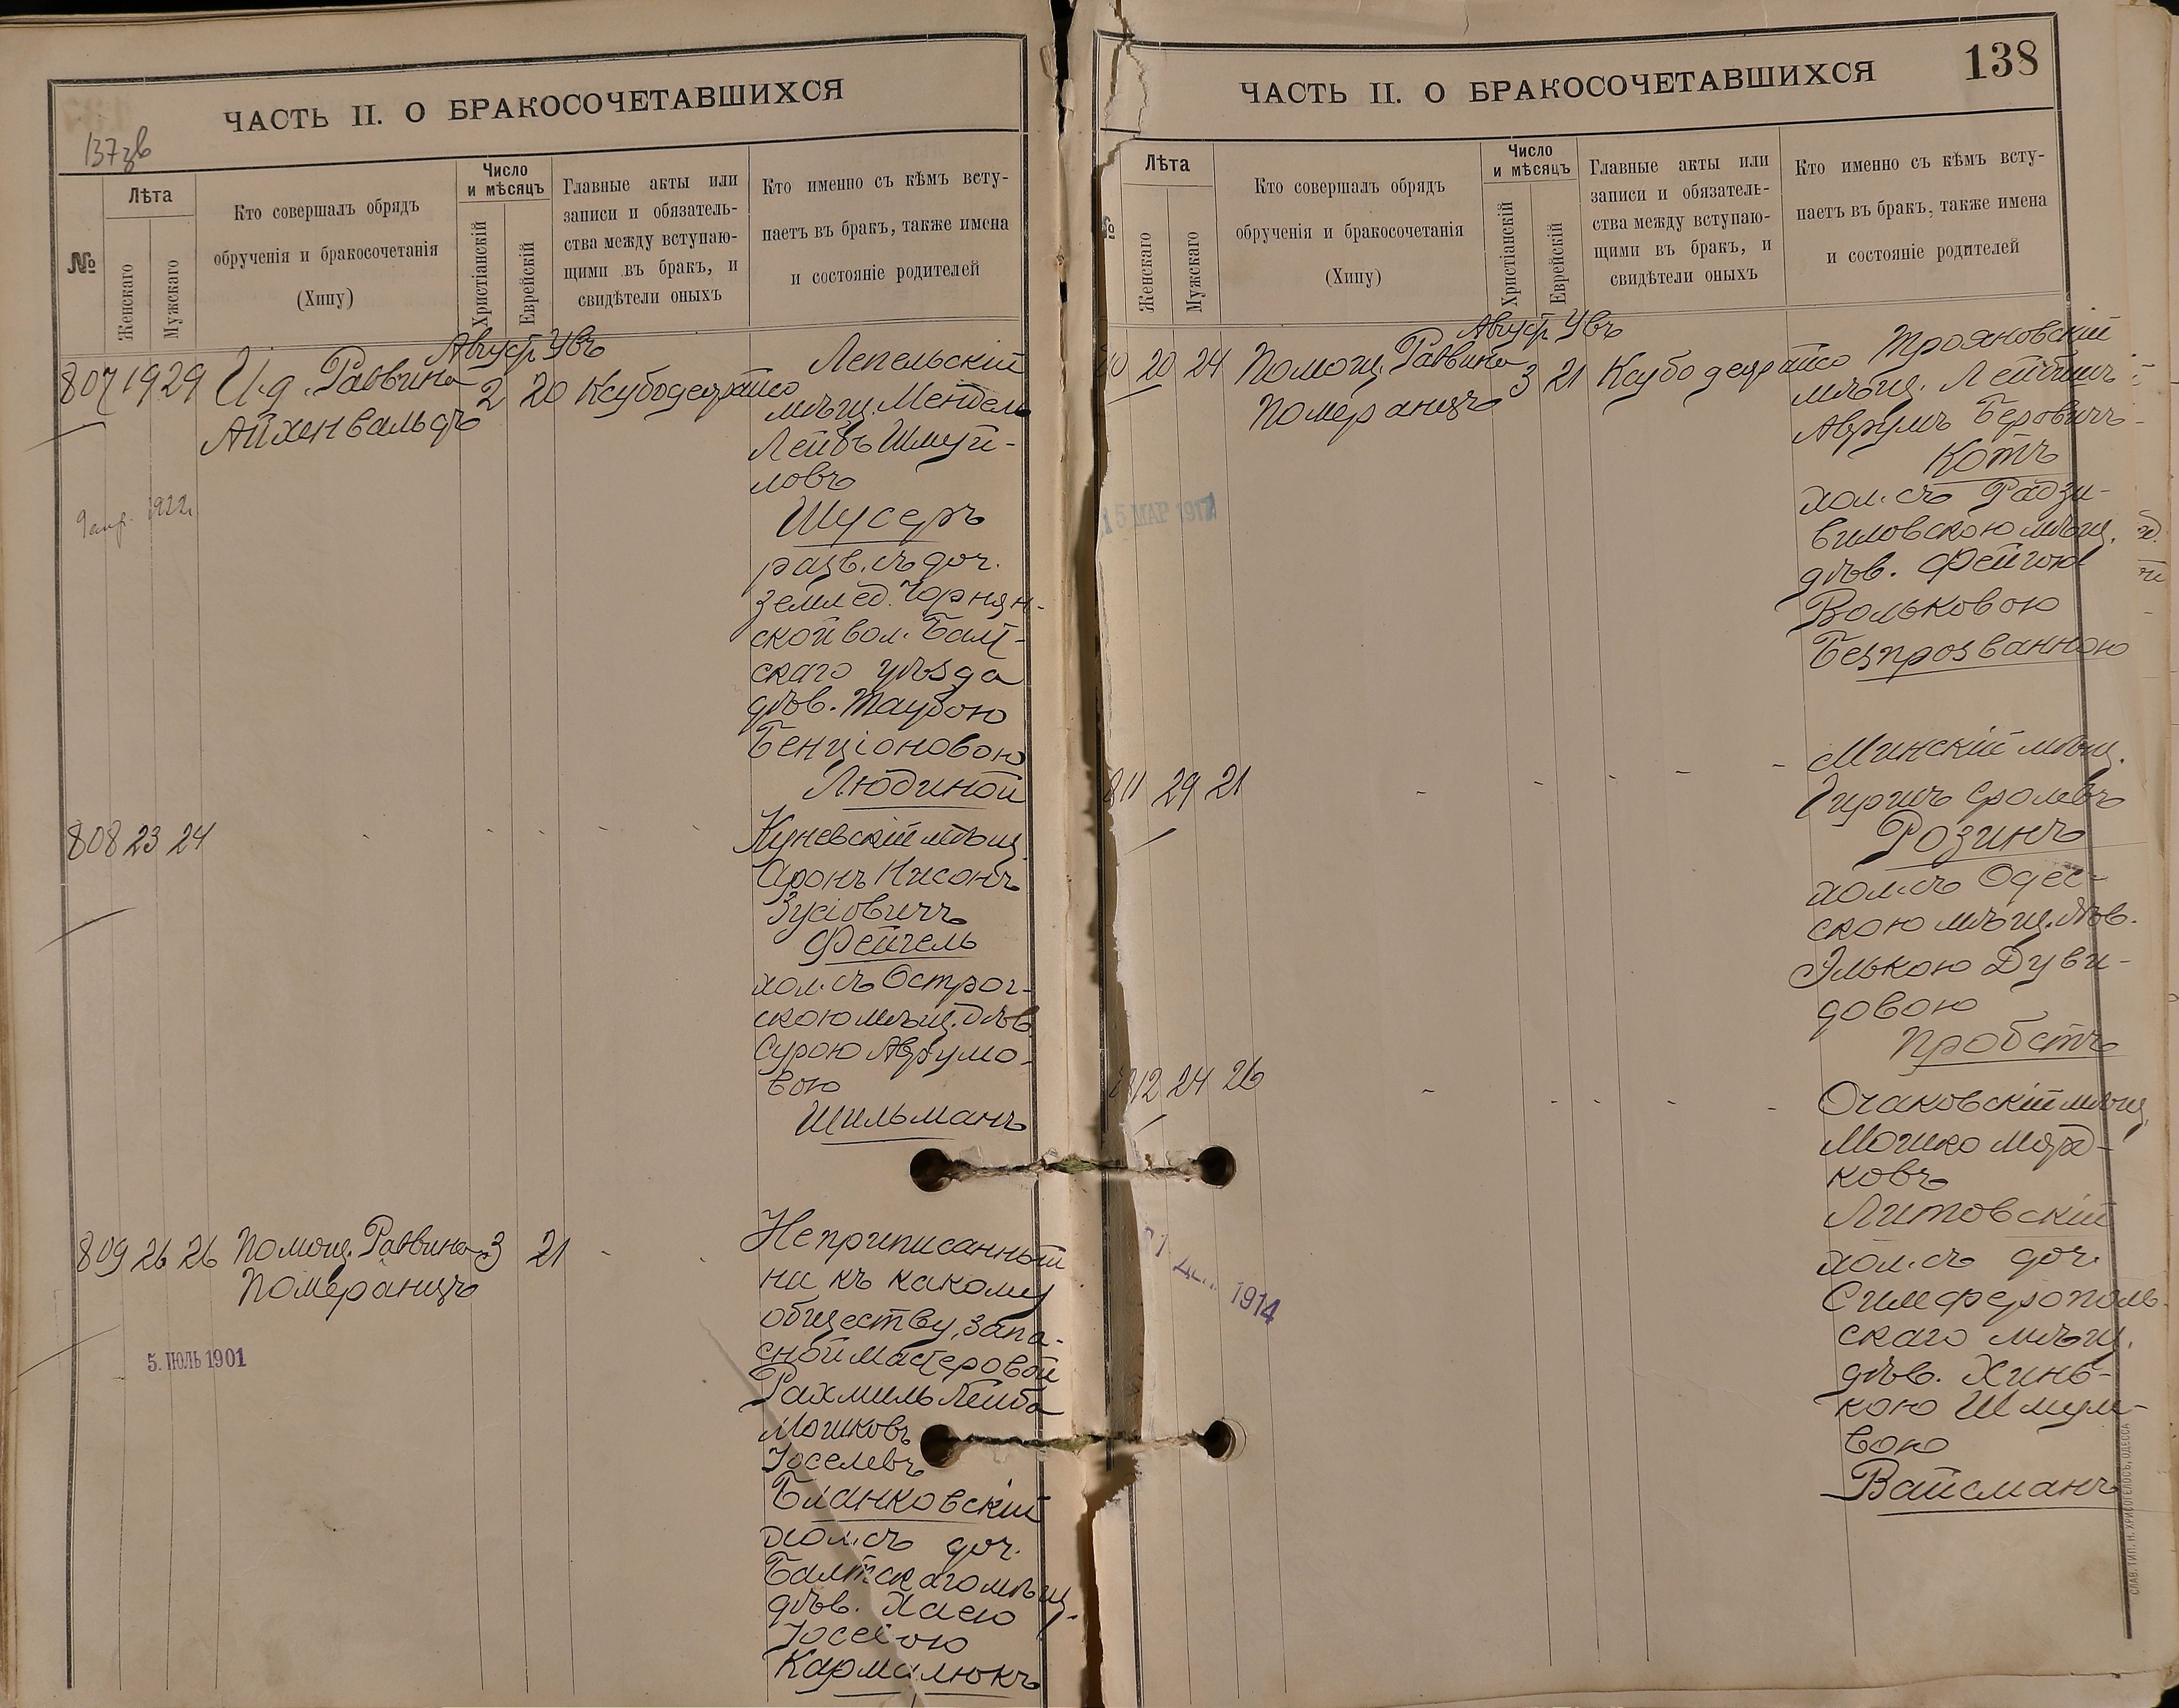 ЧАСТЬ II. О БРАКОСОЧЕТАВШИХСЯ
137 зв
№
Лѣта
Женскаго
Мужскаго
Кто совершалъ обрядъ
обрученія и бракосочетанія
(Хипу)
Число
и мѣсяцъ
Христіанскій
Еврейскій
Главные акты или
записи и обязатель-
ства между вступаю-
щими въ бракъ, и
свидѣтели оныхъ
Кто именно съ кѣмъ всту-
паетъ въ бракъ, также имена
и состояніе родителей
807 19 29 И.д. Раввина
Айхенвальдъ
Август Увъ
2 20
Лепельскій
мѣщ. Мендель
Лейбъ Шмуй-
ловъ
Шусеръ
разв. съ доч.
землед. Чорнян-
ской вол. Балт-
скаго уѣзда
дѣв. Таубою
Бенціоновою
Людиной
9 апр. 1922
808 23 24 - - - - -
Куневскій мѣщ.
Аронъ Нисонъ
Зусіовичъ
Фейгель
хол. съ Острог-
скою мѣщ. дѣв.
Сурою Аврумо-
вою
Шильманъ
809 26 26 Помощ. Раввина 3 21 - -
Померанцъ
5. ІЮЛЬ 1901
Неприписанный
ни къ какому
обществу, запа-
сной мастеровой
Рахмиль Лейба
Мошковъ
Іоселевъ
Бланковскій
хол. съ доч.
Балтскаго мѣщ.
дѣв. Хаею
Іосевою
Кармалюкъ
ЧАСТЬ II. О БРАКОСОЧЕТАВШИХСЯ
138
Лѣта
Женскаго
Мужскаго
Кто совершалъ обрядъ
обрученія и бракосочетанія
(Хипу)
Число
и мѣсяцъ
Христіанскій
Еврейскій
Главные акты или
записи и обязатель-
ства между вступаю-
щими въ бракъ, и
свидѣтели оныхъ
Кто именно съ кѣмъ всту-
паетъ въ бракъ, также имена
и состояніе родителей
20 24 Помощ. Раввина
Померанцъ
Август Увъ
3 21
Трояновскій
мѣщ. Лейбишъ
Аврумъ Беровичъ
Котъ
хол. съ Радзи-
виловскою мѣщ.
дѣв. Фейгою
Вольковою
Безпрозванною
15 МАР 1917
811 29 21 - - - - -
Минскій мѣщ.
Гиршъ Сролевъ
Розинъ
хол. съ Одес-
скою мѣщ. дѣв.
Элькою Дуви-
довою
Пробстъ
812 24 26 - - - - -
1914
Очаковскій мѣщ.
Мошко Морд-
ковъ
Литовскій
хол. съ доч.
Симферополь-
скаго мѣщ.
дѣв. Хинь-
кою Шмуле-
вою
Вайсманъ
СЛАВ. ТИП. Н. ХРИСОГЕЛОСЪ, ОДЕССА